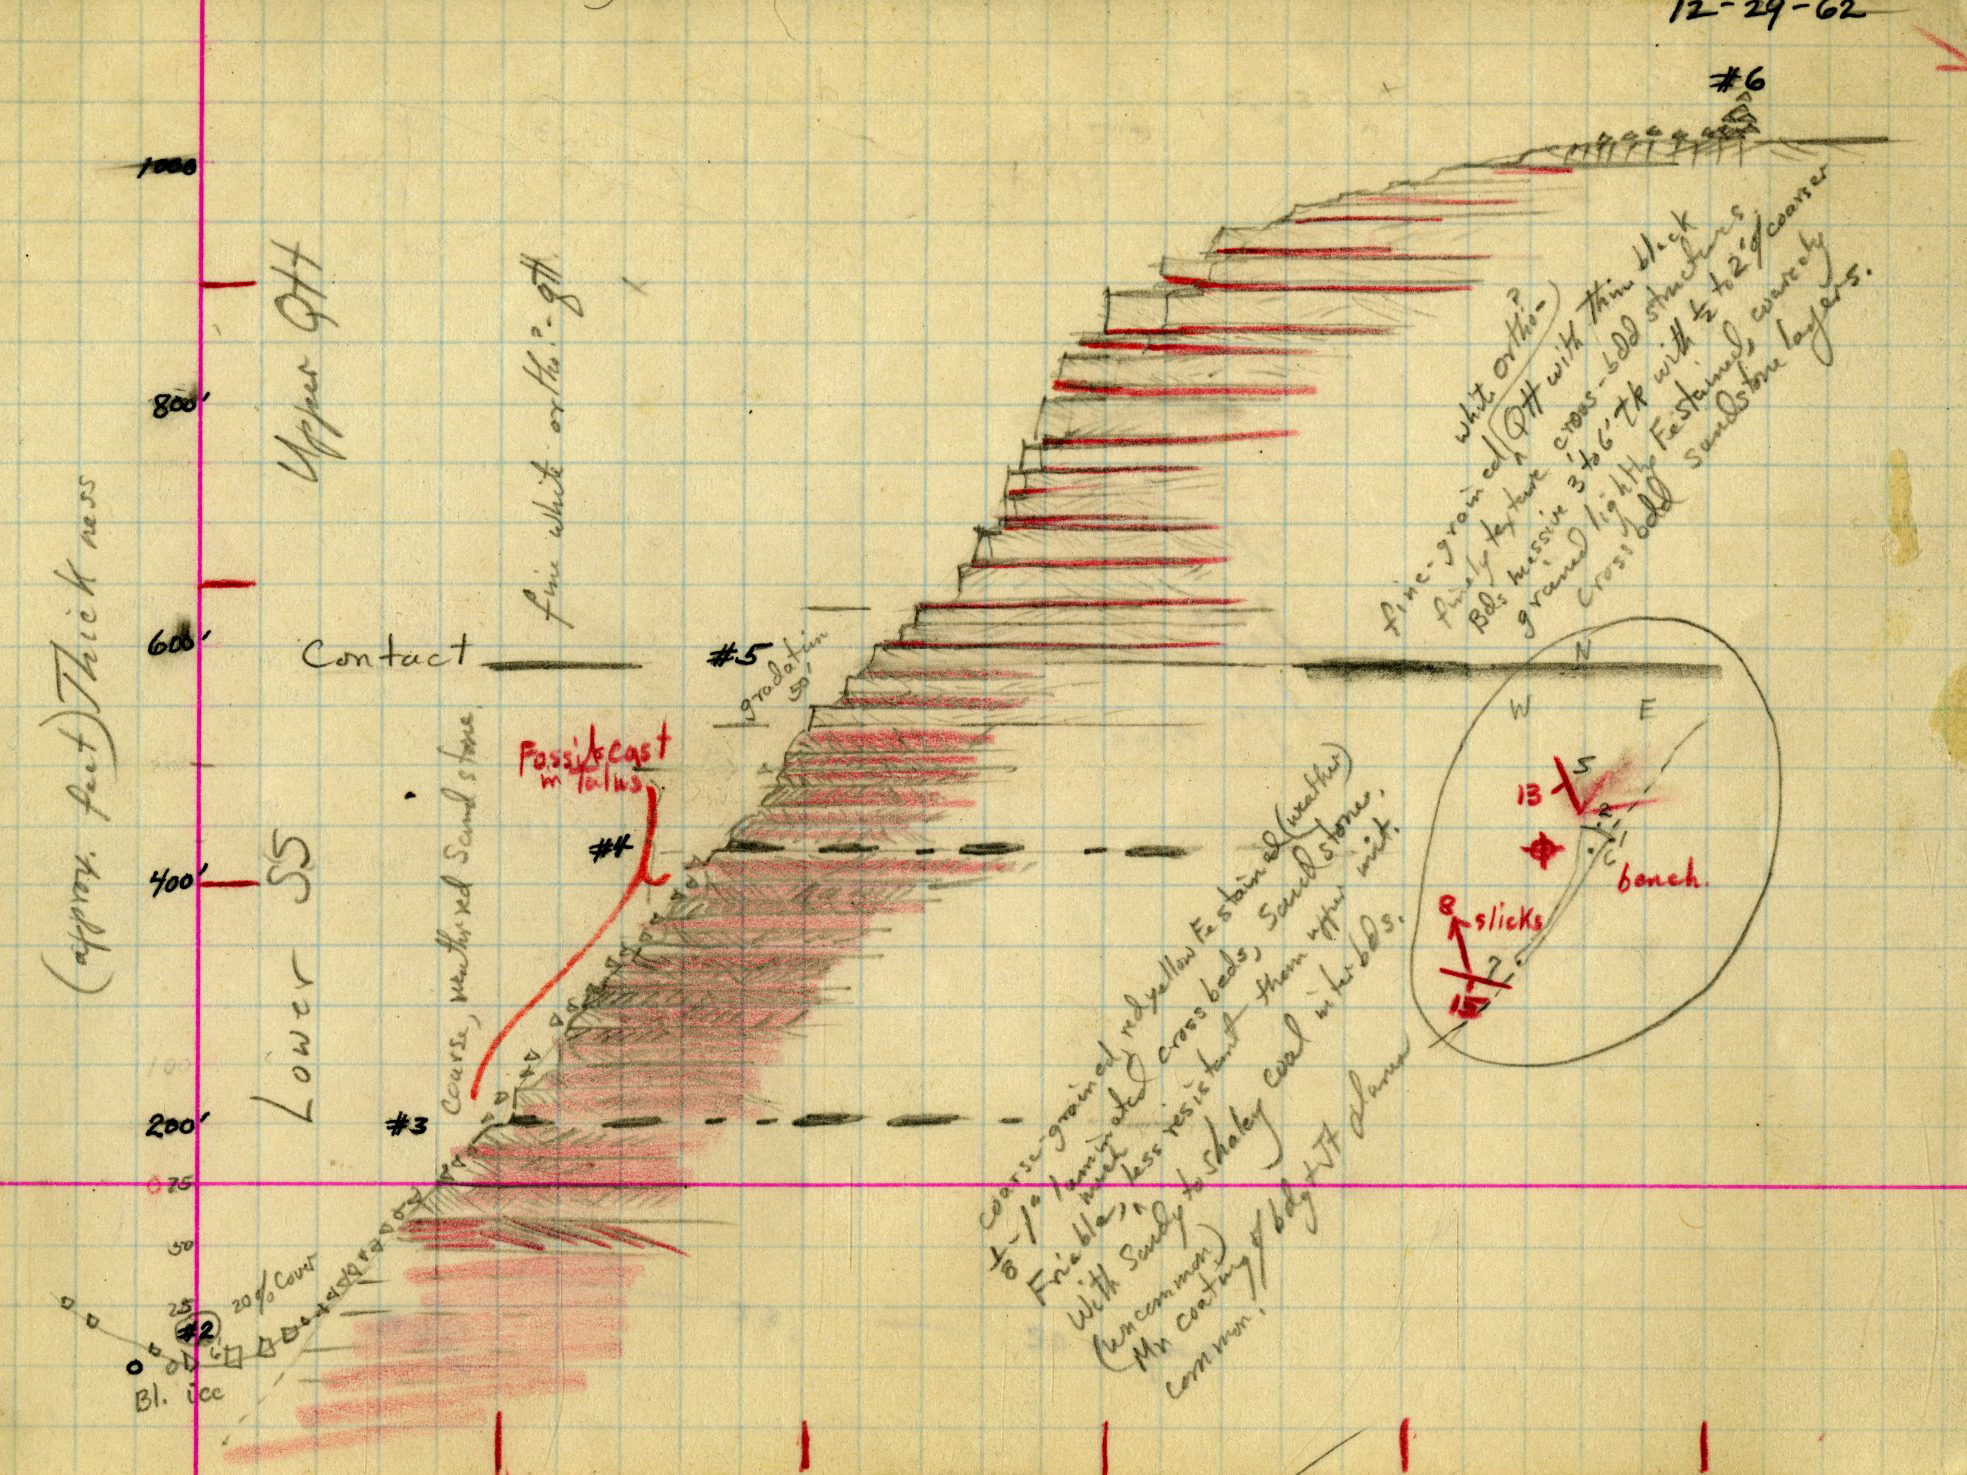 12-29-62
#6
1000
Upper Qtt
fine white ortho?-qtt.
800'
white ortho-?
fine-grained Qtt with thin black
finely texture cross-bdd structures.
Bds massive 3' to 6' tk with ½ to 2" of coarser
grained lightly Fe stained, coarsely
cross bdd sandstone layers.
(approx. feet) Thickness
600'
Contact
#5
gradation
50'
N
W
E
S
Fossil cast
in Talus
13
#4
400'
bench.
8
slicks
15
Lower SS
coarse, weathred Sandstone.
200'
#3
coarse-grained, red yellow Fe stained (weather)
⅛-1" laminated cross beds, Sandstone.
Friable, much less resistant than upper unit.
With Sandy to shaley coal interbds.
(uncommon)
Mn coating of bdg + JT planes
common.
75
50
25
0
20% Cover
#2
6'
Bl. ice